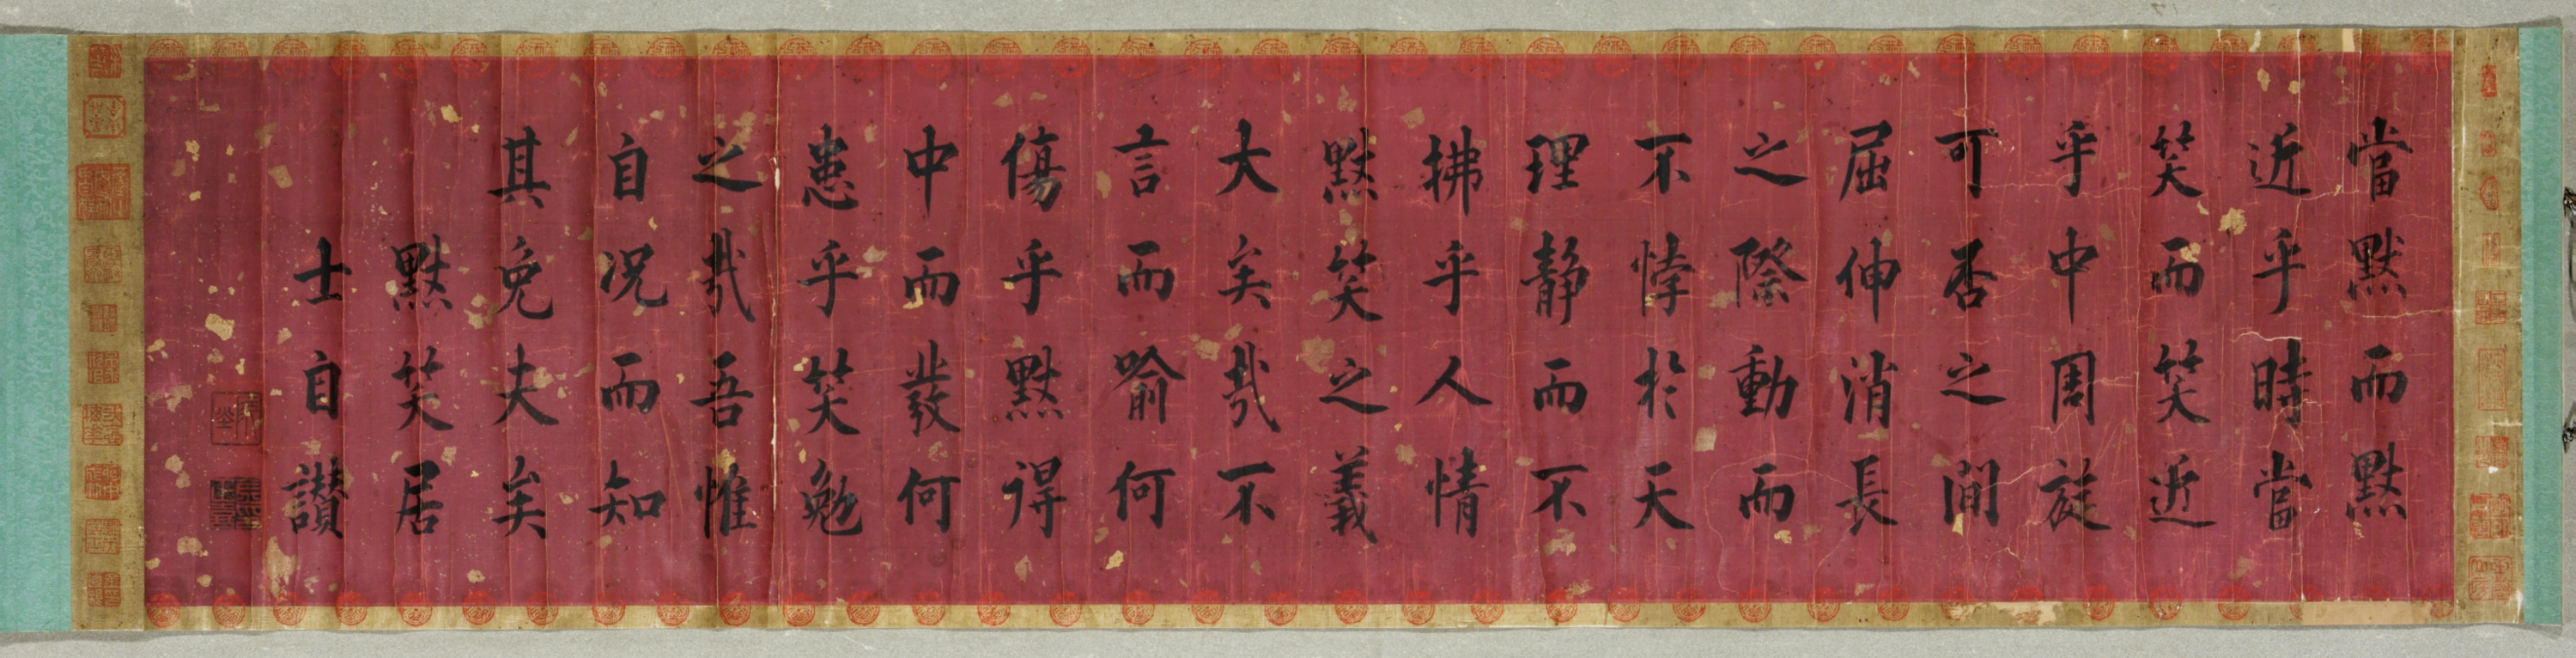 當默而默
近乎時當
笑而笑近
乎中周旋
可否之間
屈伸消長
之際動而
不悖於天
理靜而不
拂乎人情
默笑之義
大矣哉不
言而喻何
傷乎默得
中而發何
患乎笑勉
之哉吾惟
自況而知
其免夫矣
默笑居
士自讃